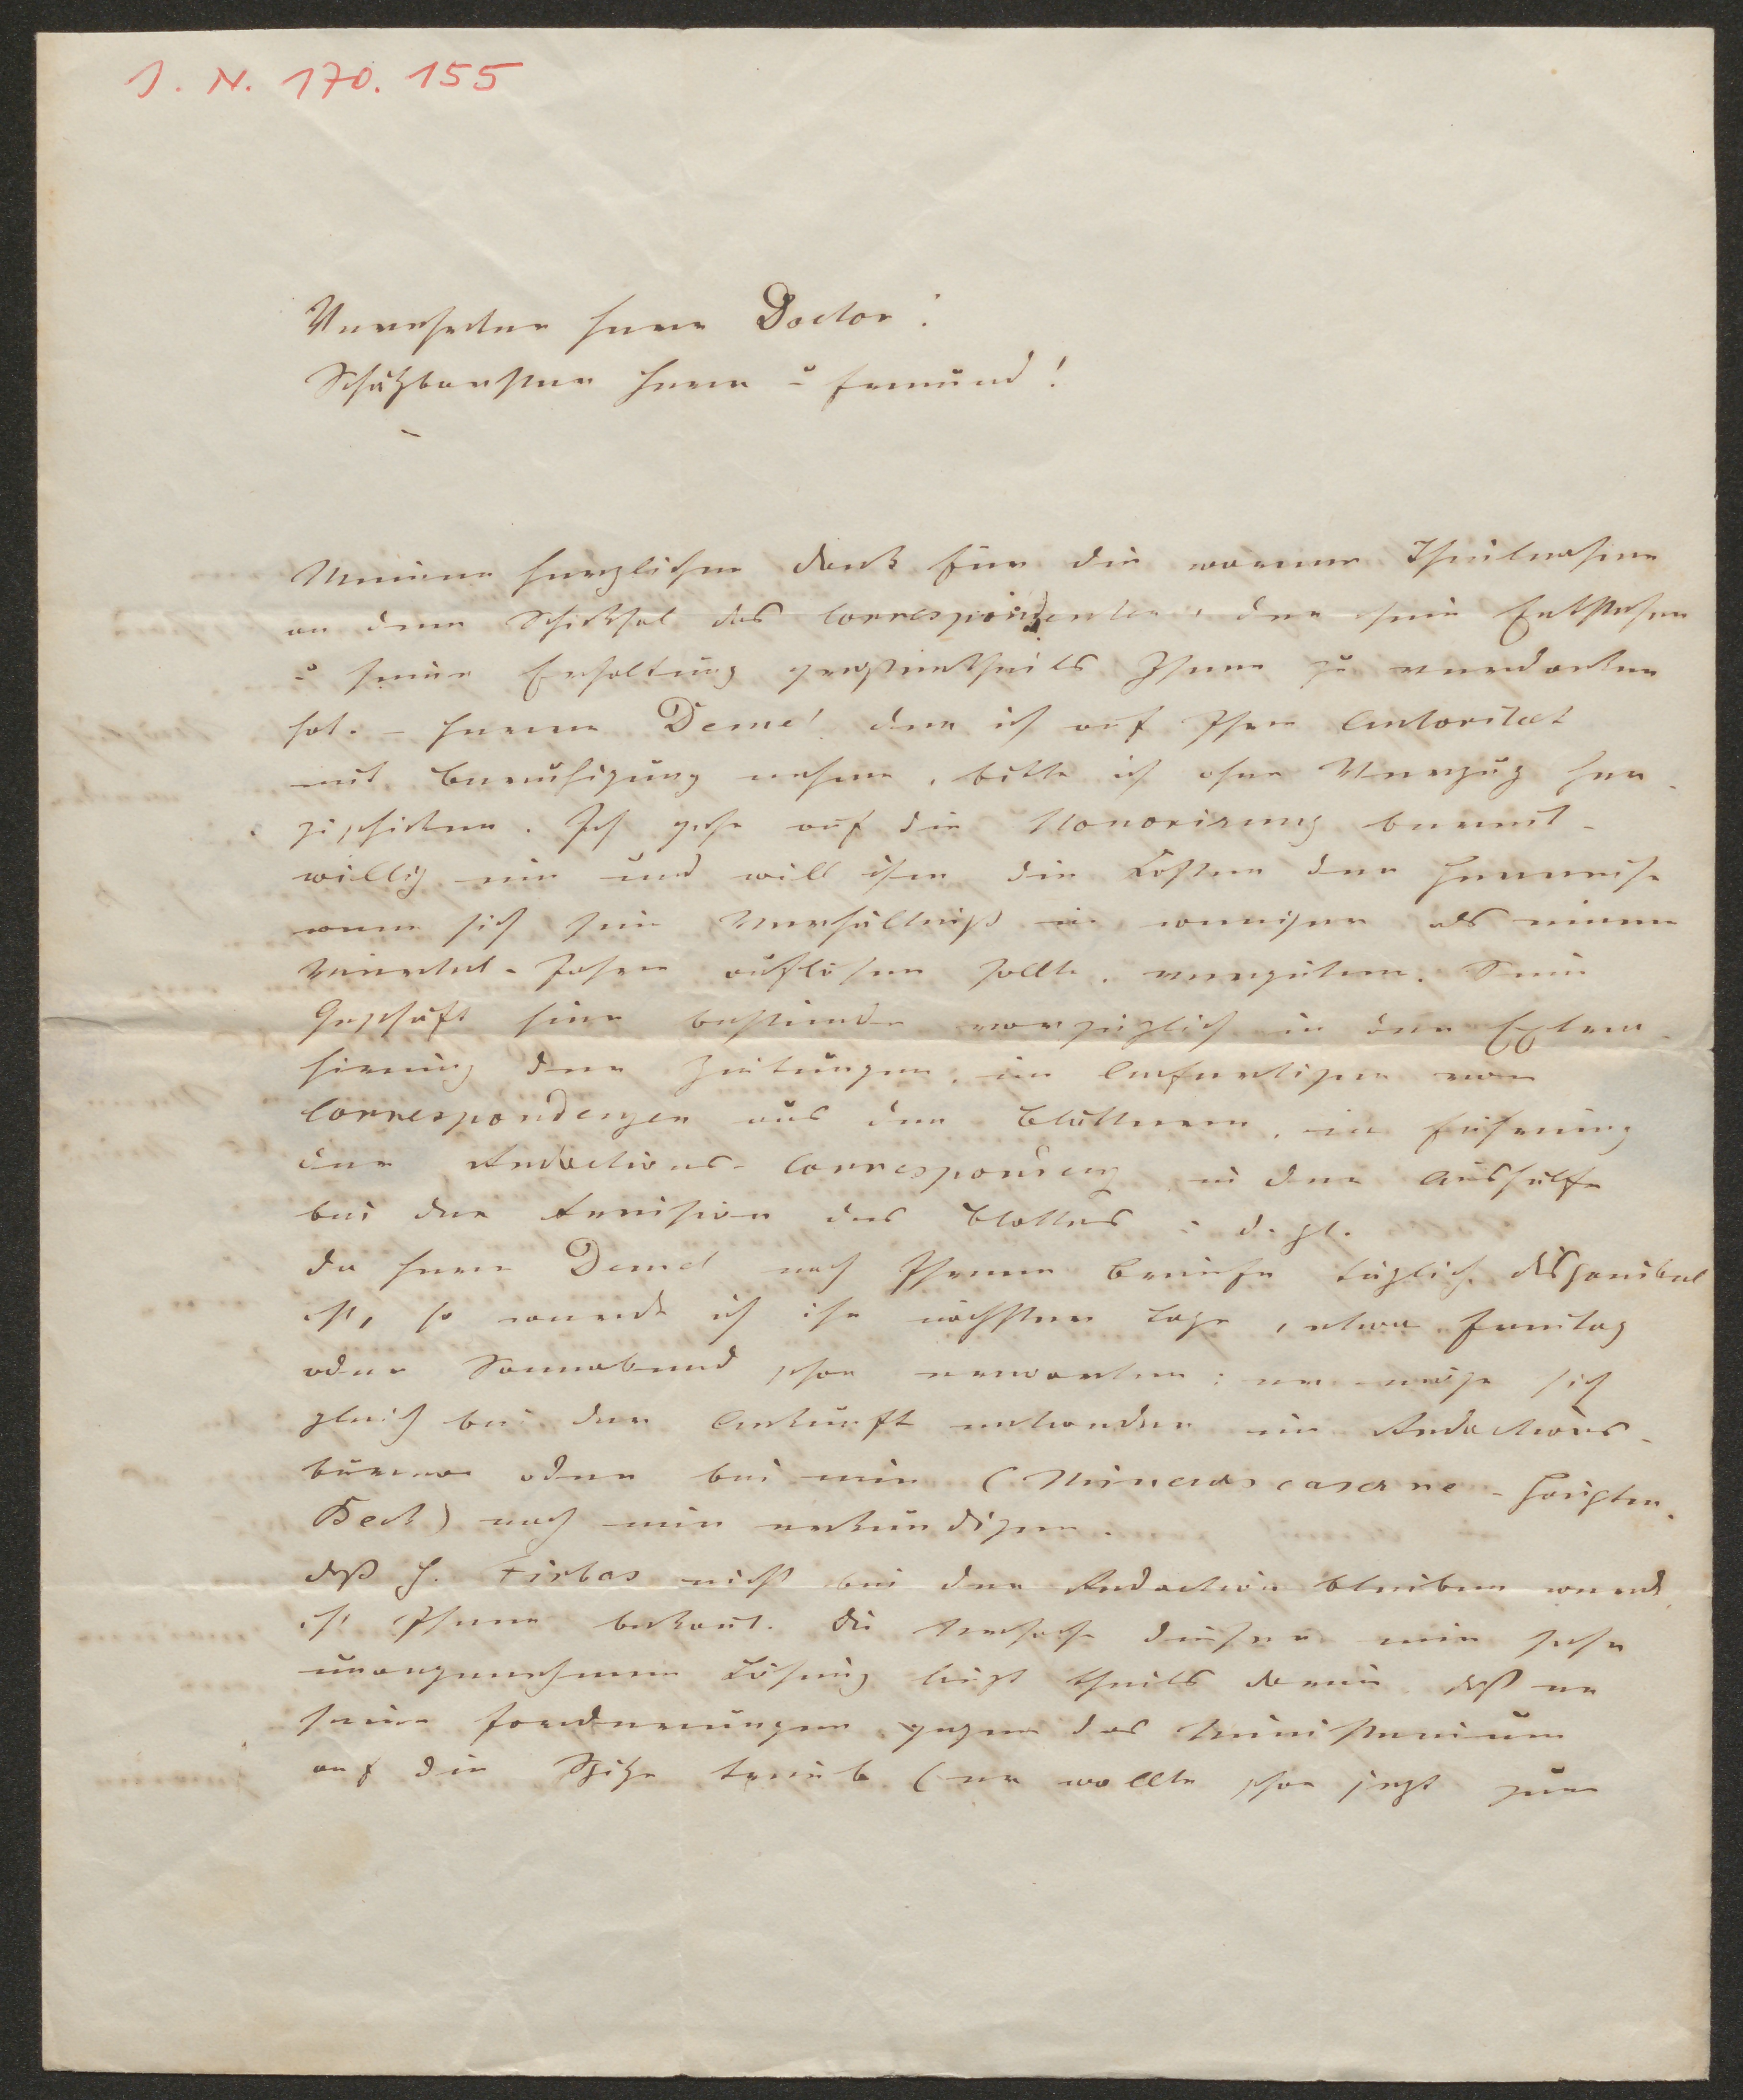 J. N. 170.155
Verehrter Herr Doctor!
Schätzbarster Herr u Freund!
Meinen herzlichen Dank für die warme Theilnahme
an dem Schicksal des Correspondenten, der sein Entstehen
u seine Erhaltung größtentheils Ihnen zu verdanken
hat. – Herrn Demel den ich auf Ihre Autorität
mit Beruhigung nehme, bitte ich ohne Verzug her-
zuschicken. Ich gehe auf die Honorirung bereit-
willig ein und will ihm die Kosten der Herreise
wenn sich sein Verhältniß in weniger als einem
Viertel-Jahre auflösen sollte, vergüten. Sein
Geschäft hier bestünde vorzüglich in der Extra-
hirung der Zeitungen, im Anfertigen von
Correspondenzen aus den Blättern, in Führung
der Redactions-Correspondenz in der Aushülfe
bei der Revision des Blattes u. d. gl.
Da Herr Demel nach Ihrem Briefe täglich disponibel
ist, so werde ich ihn nächster Tage, etwa Freitag
oder Sonnabend schon erwarten; er möge sich
gleich bei der Ankunft entweder im Redactions-
bureau oder bei mir ( caserne - Hauptm.
Beck) nach mir erkundigen.
Daß H. Firbas nicht bei der Redaction bleiben werde
ist Ihnen bekannt. Die Ursache dieser mir sehr
unangenehmen Lösung liegt theils darin, daß er
seine Forderungen gegen das Ministerium
auf die Spitze trieb (er wollte schon jetzt zum